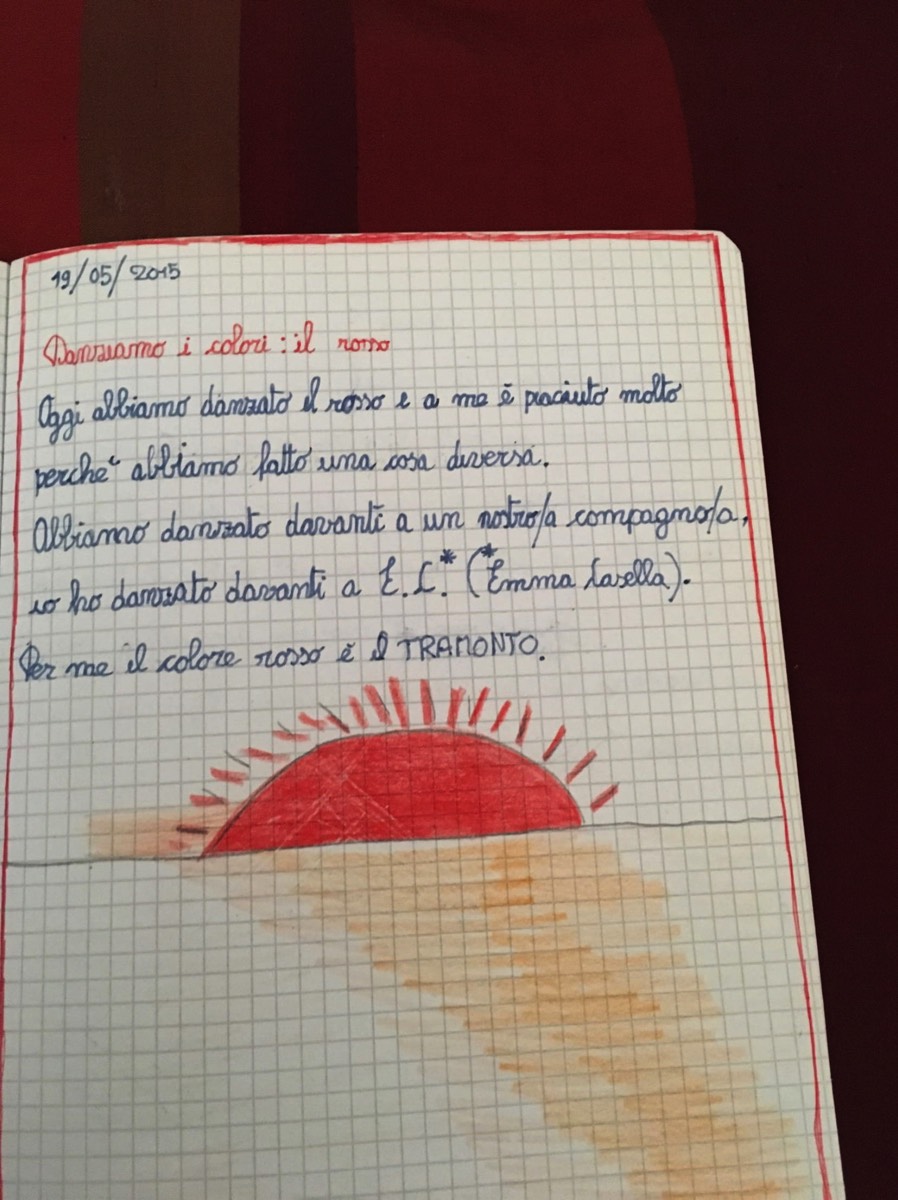 19/05/2015
Danziamo i colori: il rosso
Oggi abbiamo danzato il rosso e a me è piaciuto molto
perché abbiamo fatto una cosa diversa.
Abbiamo danzato davanti a un nostro/a compagno/a,
io ho danzato davanti a E.C.* (*Emma Casella).
Per me il colore rosso è il TRAMONTO.